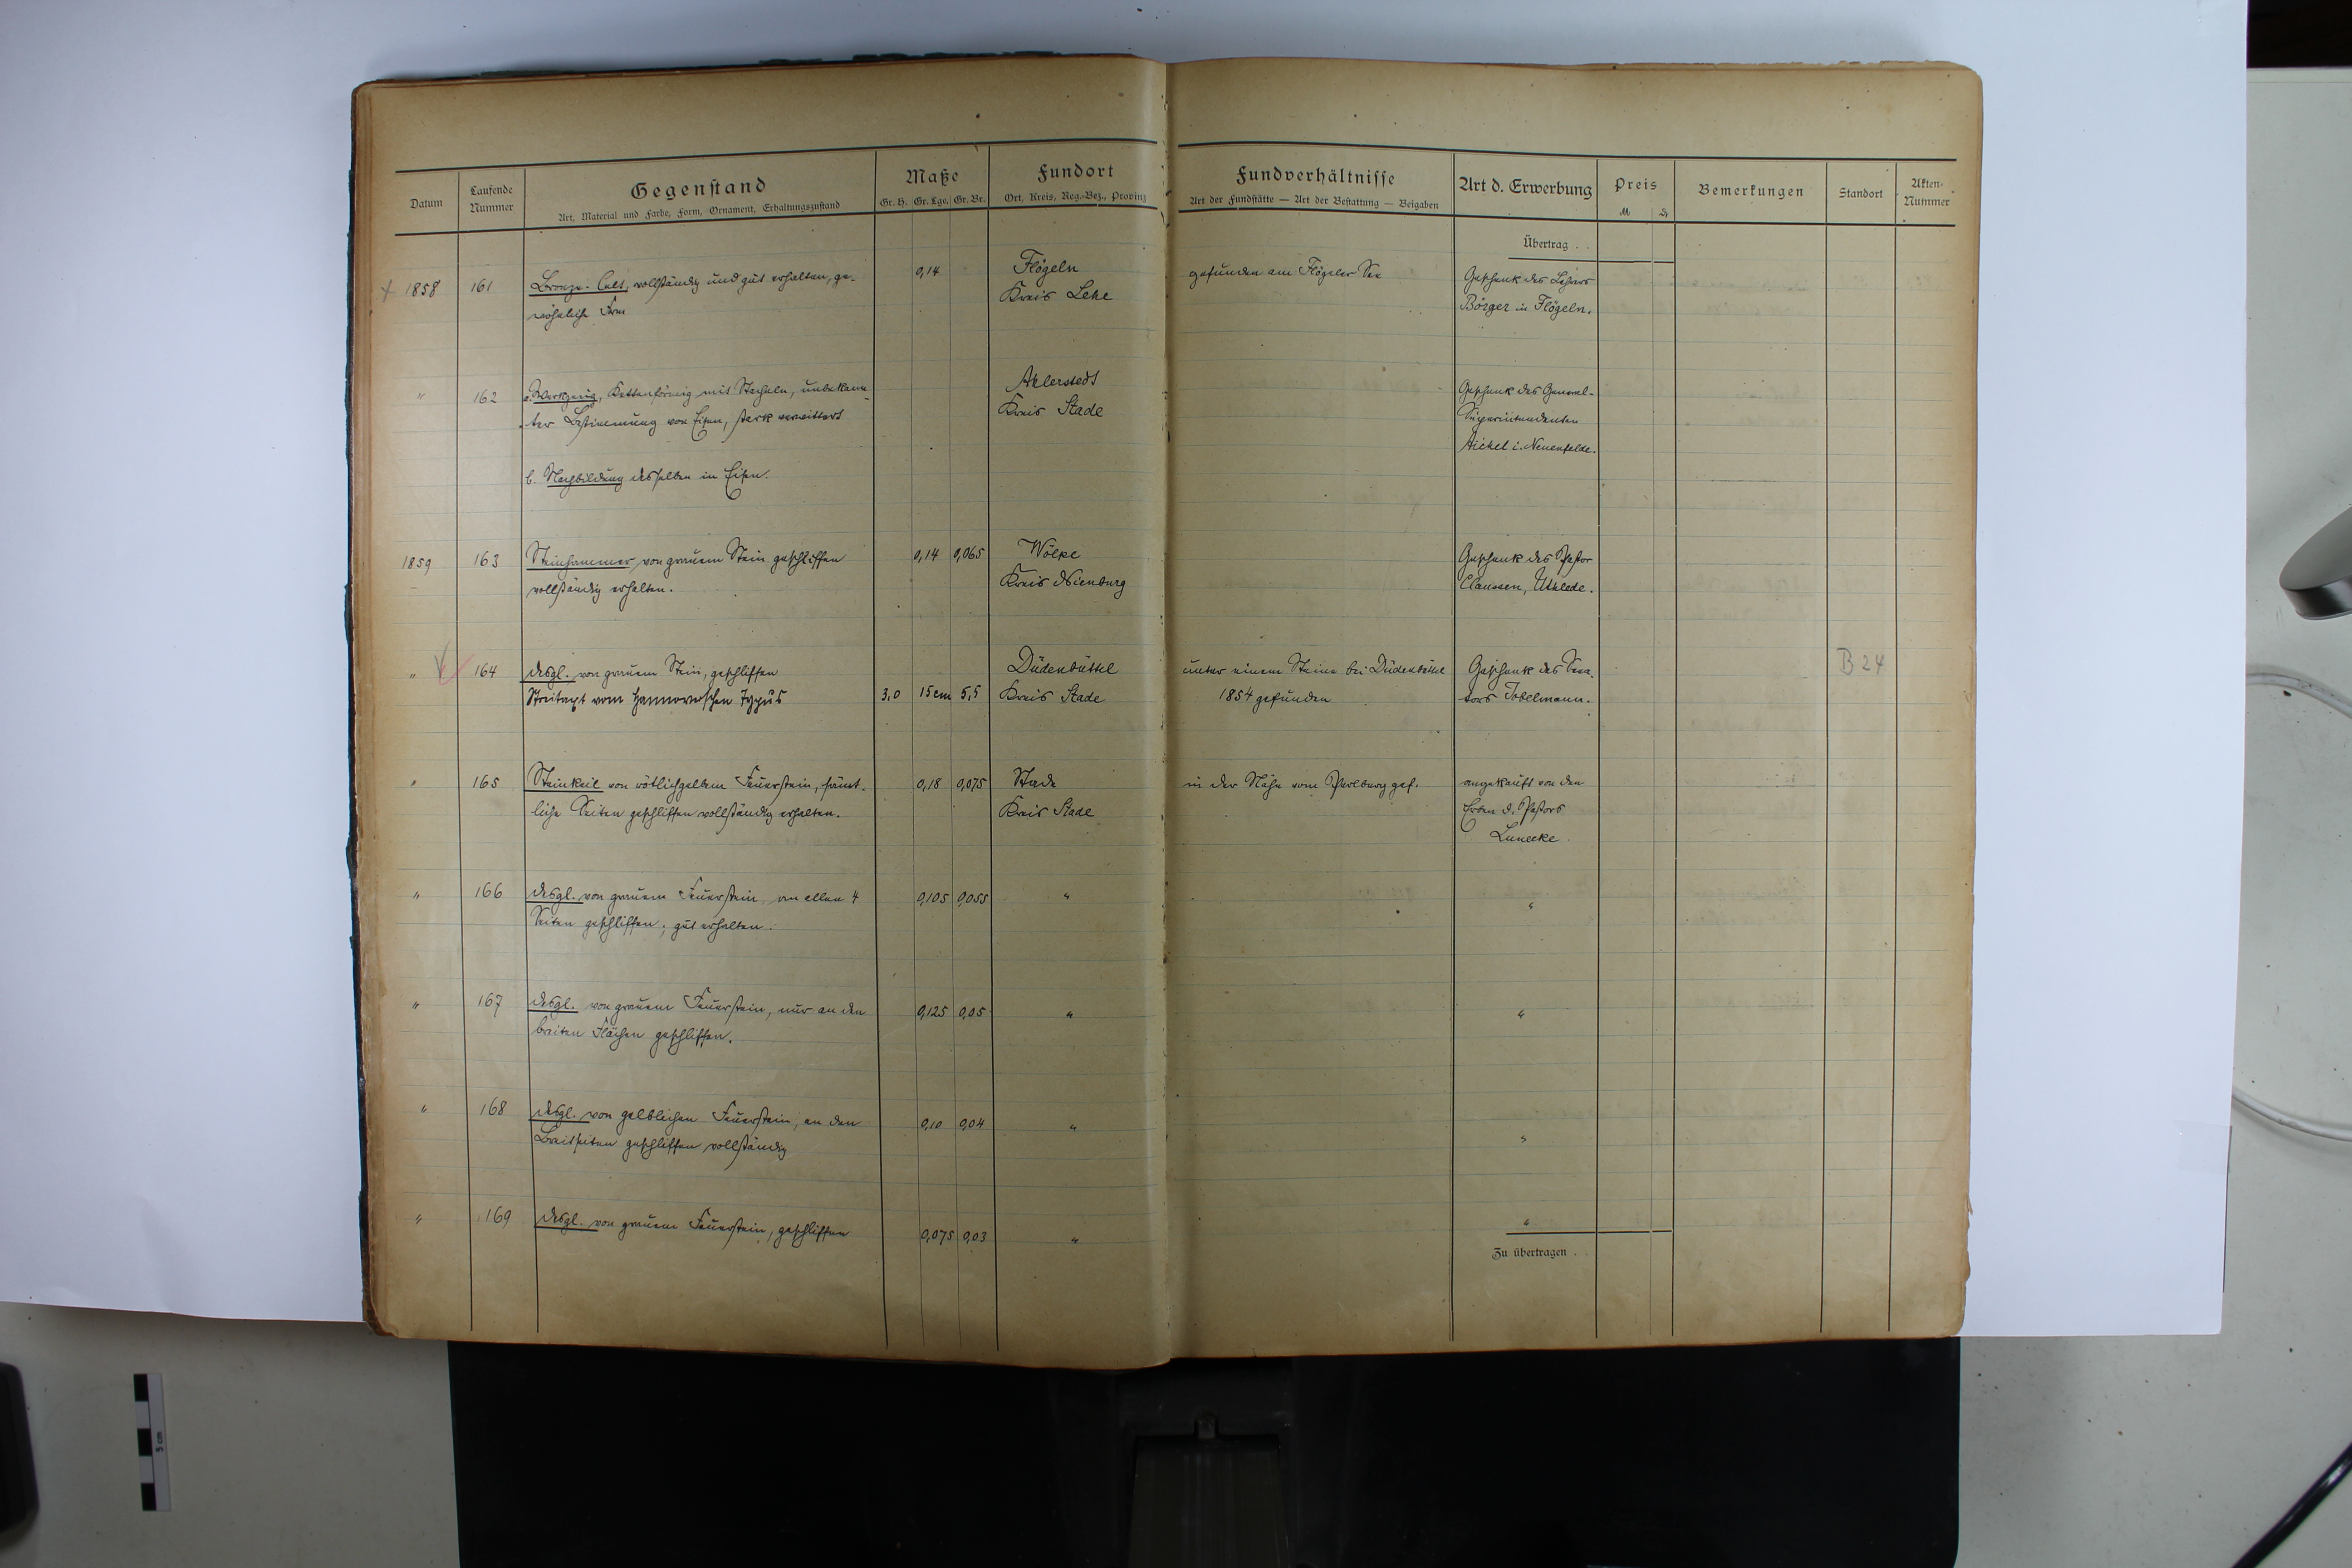 Datum
Laufende Nummer
Gegenstand
Art, Material und Farbe, Form, Ornament, Erhaltungszustand
Maße
Gr. H. Gr. Lge. Gr. Br.
Fundort
Ort, Kreis, Reg.-Bez., Provinz
Fundverhältnisse
Art der Fundstätte — Art der Bestattung — Beigaben
Art d. Erwerbung
Preis
M
Bemerkungen
Standort
Akten-Nummer
Übertrag . .
+ 1858 161 Bronze-Celt, vollständig und gut erhalten, ge- 0,14 Flögeln gefunden am Flögelner See Geschenk des Lehrers
wöhnliche Form Kreis Lehe Börger in Flögeln.
" 162 a. Werkzeug, Kettenförmig mit Stacheln, unbekann- Ahlerstedt Geschenk des General-
ter Bestimmung von Eisen, stark verwittert Kreis Stade Superintendenten
Aichel i. Neuenfelde.
b. Nachbildung desselben in Eisen.
1859 163 Steinhammer von grauem Stein geschliffen 0,14 0,065 Wölpe Geschenk des Pastor
vollständig erhalten. Kreis Nienburg Claussen, Uthlede.
" 164 desgl. von grauem Stein, geschliffen Düdenbüttel unter einem Steine bei Düdenbüttel Geschenk des Sena- B 24
Streitaxt vom Hannoverschen Typus 3,0 15cm 5,5 Kreis Stade 1854 gefunden tors Tobelmann.
" 165 Steinkeil von rötlichgelbem Feuerstein, sämt- 0,18 0,075 Stade in der Nähe vom gef. angekauft von den
liche Seiten geschliffen vollständig erhalten. Kreis Stade Erben d. Pastors
Lunecke.
" 166 desgl. von grauem Feuerstein, an allen 4 0,105 0,055 " "
Seiten geschliffen; gut erhalten.
" 167 desgl. von grauem Feuerstein, nur an den 0,125 0,05 " "
breiten Flächen geschliffen.
" 168 desgl. von gelblichen Feuerstein, an den 0,10 0,04 " "
Breitseiten geschliffen vollständig
" 169 desgl. von grauem Feuerstein, geschliffen 0,075 0,03 " "
Zu übertragen . .
5 cm